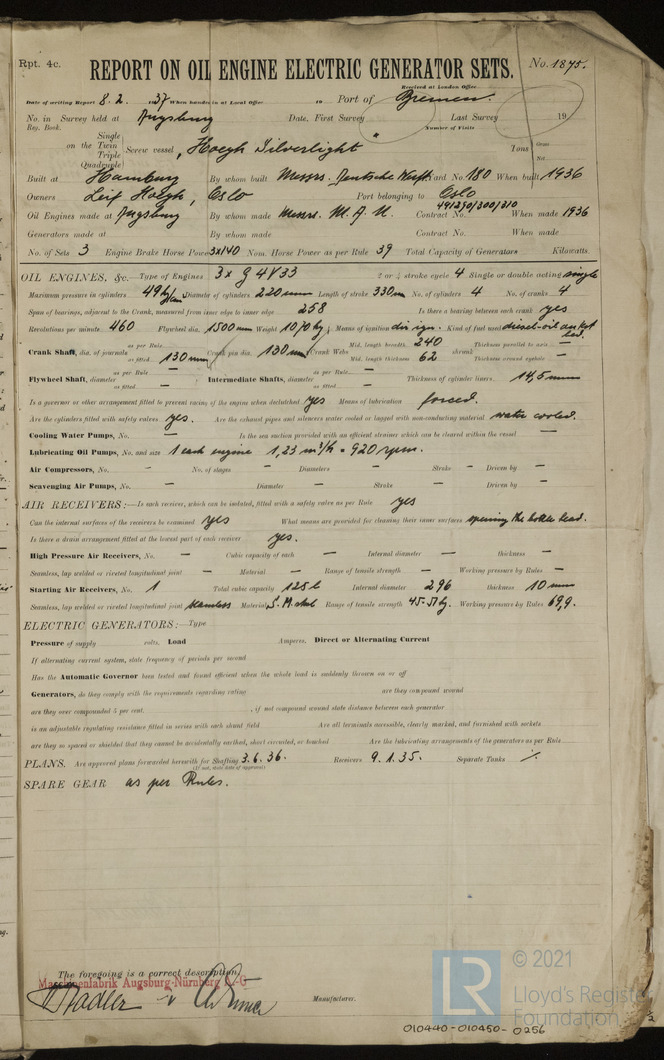 Rpt. 4c.
REPORT ON OIL ENGINE ELECTRIC GENERATOR SETS.
No. 1875.
Received at London Office
Date of writing Report 8.2. 1937 When handed in at Local Office 19 Port of Bremen.
No. in Survey held at Augsburg Date, First Survey Last Survey 19
Reg. Book. Number of Visits
on the Single Twin Triple Quadruple Screw vessel „Hoegh Silverlight" Tons Gross Net
Built at Hamburg By whom built Messrs. Deutsche Werft Yard No. 180 When built 1936
Owners Leif Hoegh, Oslo Port belonging to Oslo
Oil Engines made at Augsburg By whom made Messrs. M.A.N. Contract No. 491290/300/310 When made 1936
Generators made at By whom made Contract No. When made
No. of Sets 3 Engine Brake Horse Power 3x140 Nom. Horse Power as per Rule 39 Total Capacity of Generators Kilowatts.
OIL ENGINES, &c. Type of Engines 3x G4V33 2 or 4 stroke cycle 4 Single or double acting single
Maximum pressure in cylinders 49 kg/cm Diameter of cylinders 220 mm Length of stroke 330 mm No. of cylinders 4 No. of cranks 4
Span of bearings, adjacent to the Crank, measured from inner edge to inner edge 258 Is there a bearing between each crank yes
Revolutions per minute 460 Flywheel dia. 1500 mm Weight 1070 kg Means of ignition dir. ign. Kind of fuel used diesel-oil
Crank Shaft, dia. of journals as per Rule — as fitted 130 mm Crank pin dia. 130 mm Crank Webs Mid. length breadth 240 Mid. length thickness 62 shrunk Thickness parallel to axis — Thickness around eyehole —
Flywheel Shaft, diameter as per Rule — as fitted — Intermediate Shafts, diameter as per Rule — as fitted — Thickness of cylinder liners 14,5 mm
Is a governor or other arrangement fitted to prevent racing of the engine when declutched yes Means of lubrication forced.
Are the cylinders fitted with safety valves yes. Are the exhaust pipes and silencers water cooled or lagged with non-conducting material water cooled.
Cooling Water Pumps, No. — Is the sea suction provided with an efficient strainer which can be cleared within the vessel —
Lubricating Oil Pumps, No. and size 1 each engine 1,23 m³/h = 920 rpm.
Air Compressors, No. — No. of stages — Diameters — Stroke — Driven by —
Scavenging Air Pumps, No. — Diameter — Stroke — Driven by —
AIR RECEIVERS:—Is each receiver, which can be isolated, fitted with a safety valve as per Rule yes
Can the internal surfaces of the receivers be examined yes What means are provided for cleaning their inner surfaces opening the bottle head.
Is there a drain arrangement fitted at the lowest part of each receiver yes.
High Pressure Air Receivers, No. — Cubic capacity of each — Internal diameter — thickness —
Seamless, lap welded or riveted longitudinal joint — Material — Range of tensile strength — Working pressure by Rules —
Starting Air Receivers, No. 1 Total cubic capacity 125 l Internal diameter 296 thickness 10 mm
Seamless, lap welded or riveted longitudinal joint seamless Material S.M. steel Range of tensile strength 45-51 kg. Working pressure by Rules 69,9.
ELECTRIC GENERATORS:—Type
Pressure of supply volts. Load Amperes. Direct or Alternating Current
If alternating current system, state frequency of periods per second
Has the Automatic Governor been tested and found efficient when the whole load is suddenly thrown on or off
Generators, do they comply with the requirements regarding rating are they compound wound
are they over compounded 5 per cent. , if not compound wound state distance between each generator
is an adjustable regulating resistance fitted in series with each shunt field Are all terminals accessible, clearly marked, and furnished with sockets
are they so spaced or shielded that they cannot be accidentally earthed, short circuited, or touched Are the lubricating arrangements of the generators as per Rule
PLANS. Are approved plans forwarded herewith for Shafting 3.6.36. Receivers 9.1.35. Separate Tanks ·/.
(If not, state date of approval)
SPARE GEAR as per Rules.
The foregoing is a correct description,
Maschinenfabrik Augsburg-Nürnberg A.-G
Manufacturer.
LR © 2021
Lloyd's Register
Foundation
010440-010450-0256